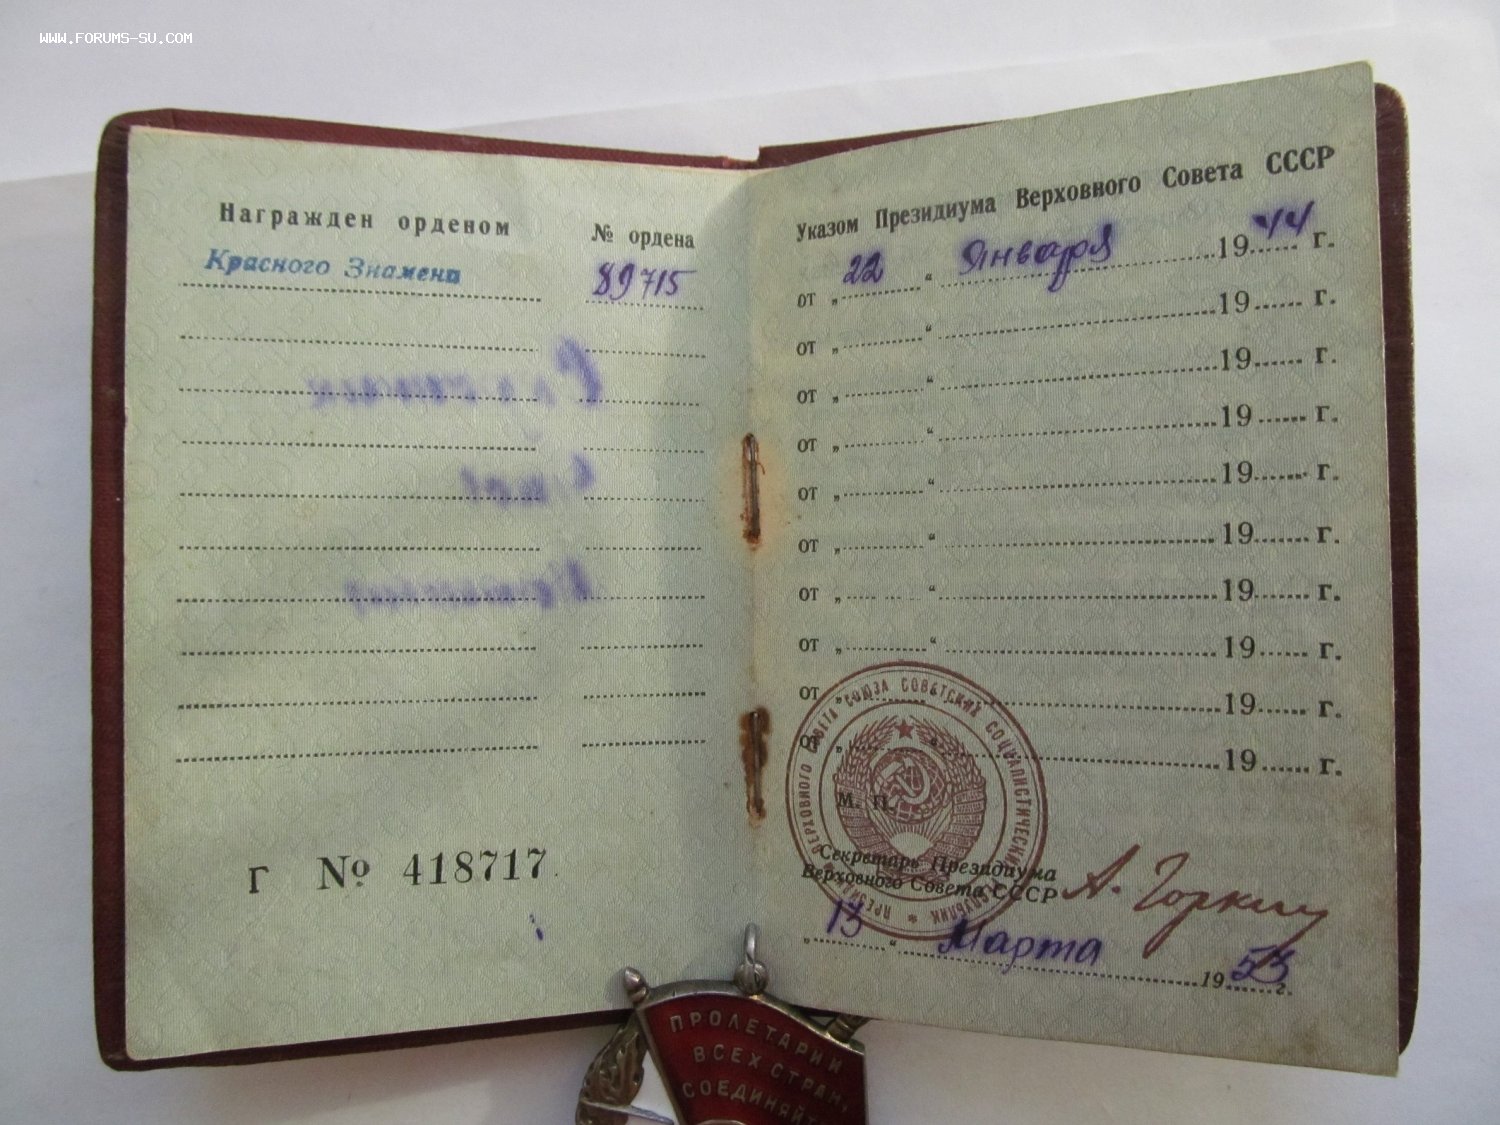 WWW.FORUMS-SU.COM
Награжден орденом № ордена
Красного Знамена 89715
Г № 418717
Указом Президиума Верховного Совета СССР
от „ 22 “ Января 1944 г.
от „ “ 19 г.
от „ “ 19 г.
от „ “ 19 г.
от „ “ 19 г.
от „ “ 19 г.
от „ “ 19 г.
от „ “ 19 г.
от „ “ 19 г.
от „ “ 19 г.
М. П.
ПРЕЗИДИУМ ВЕРХОВНОГО СОВЕТА СОЮЗА СОВЕТСКИХ СОЦИАЛИСТИЧЕСКИХ РЕСПУБЛИК
Секретарь Президиума
Верховного Совета СССР А. Горкин
„ 13 “ Марта 1953 г.
ПРОЛЕТАРИИ
ВСЕХ СТРАН,
СОЕДИНЯЙТ